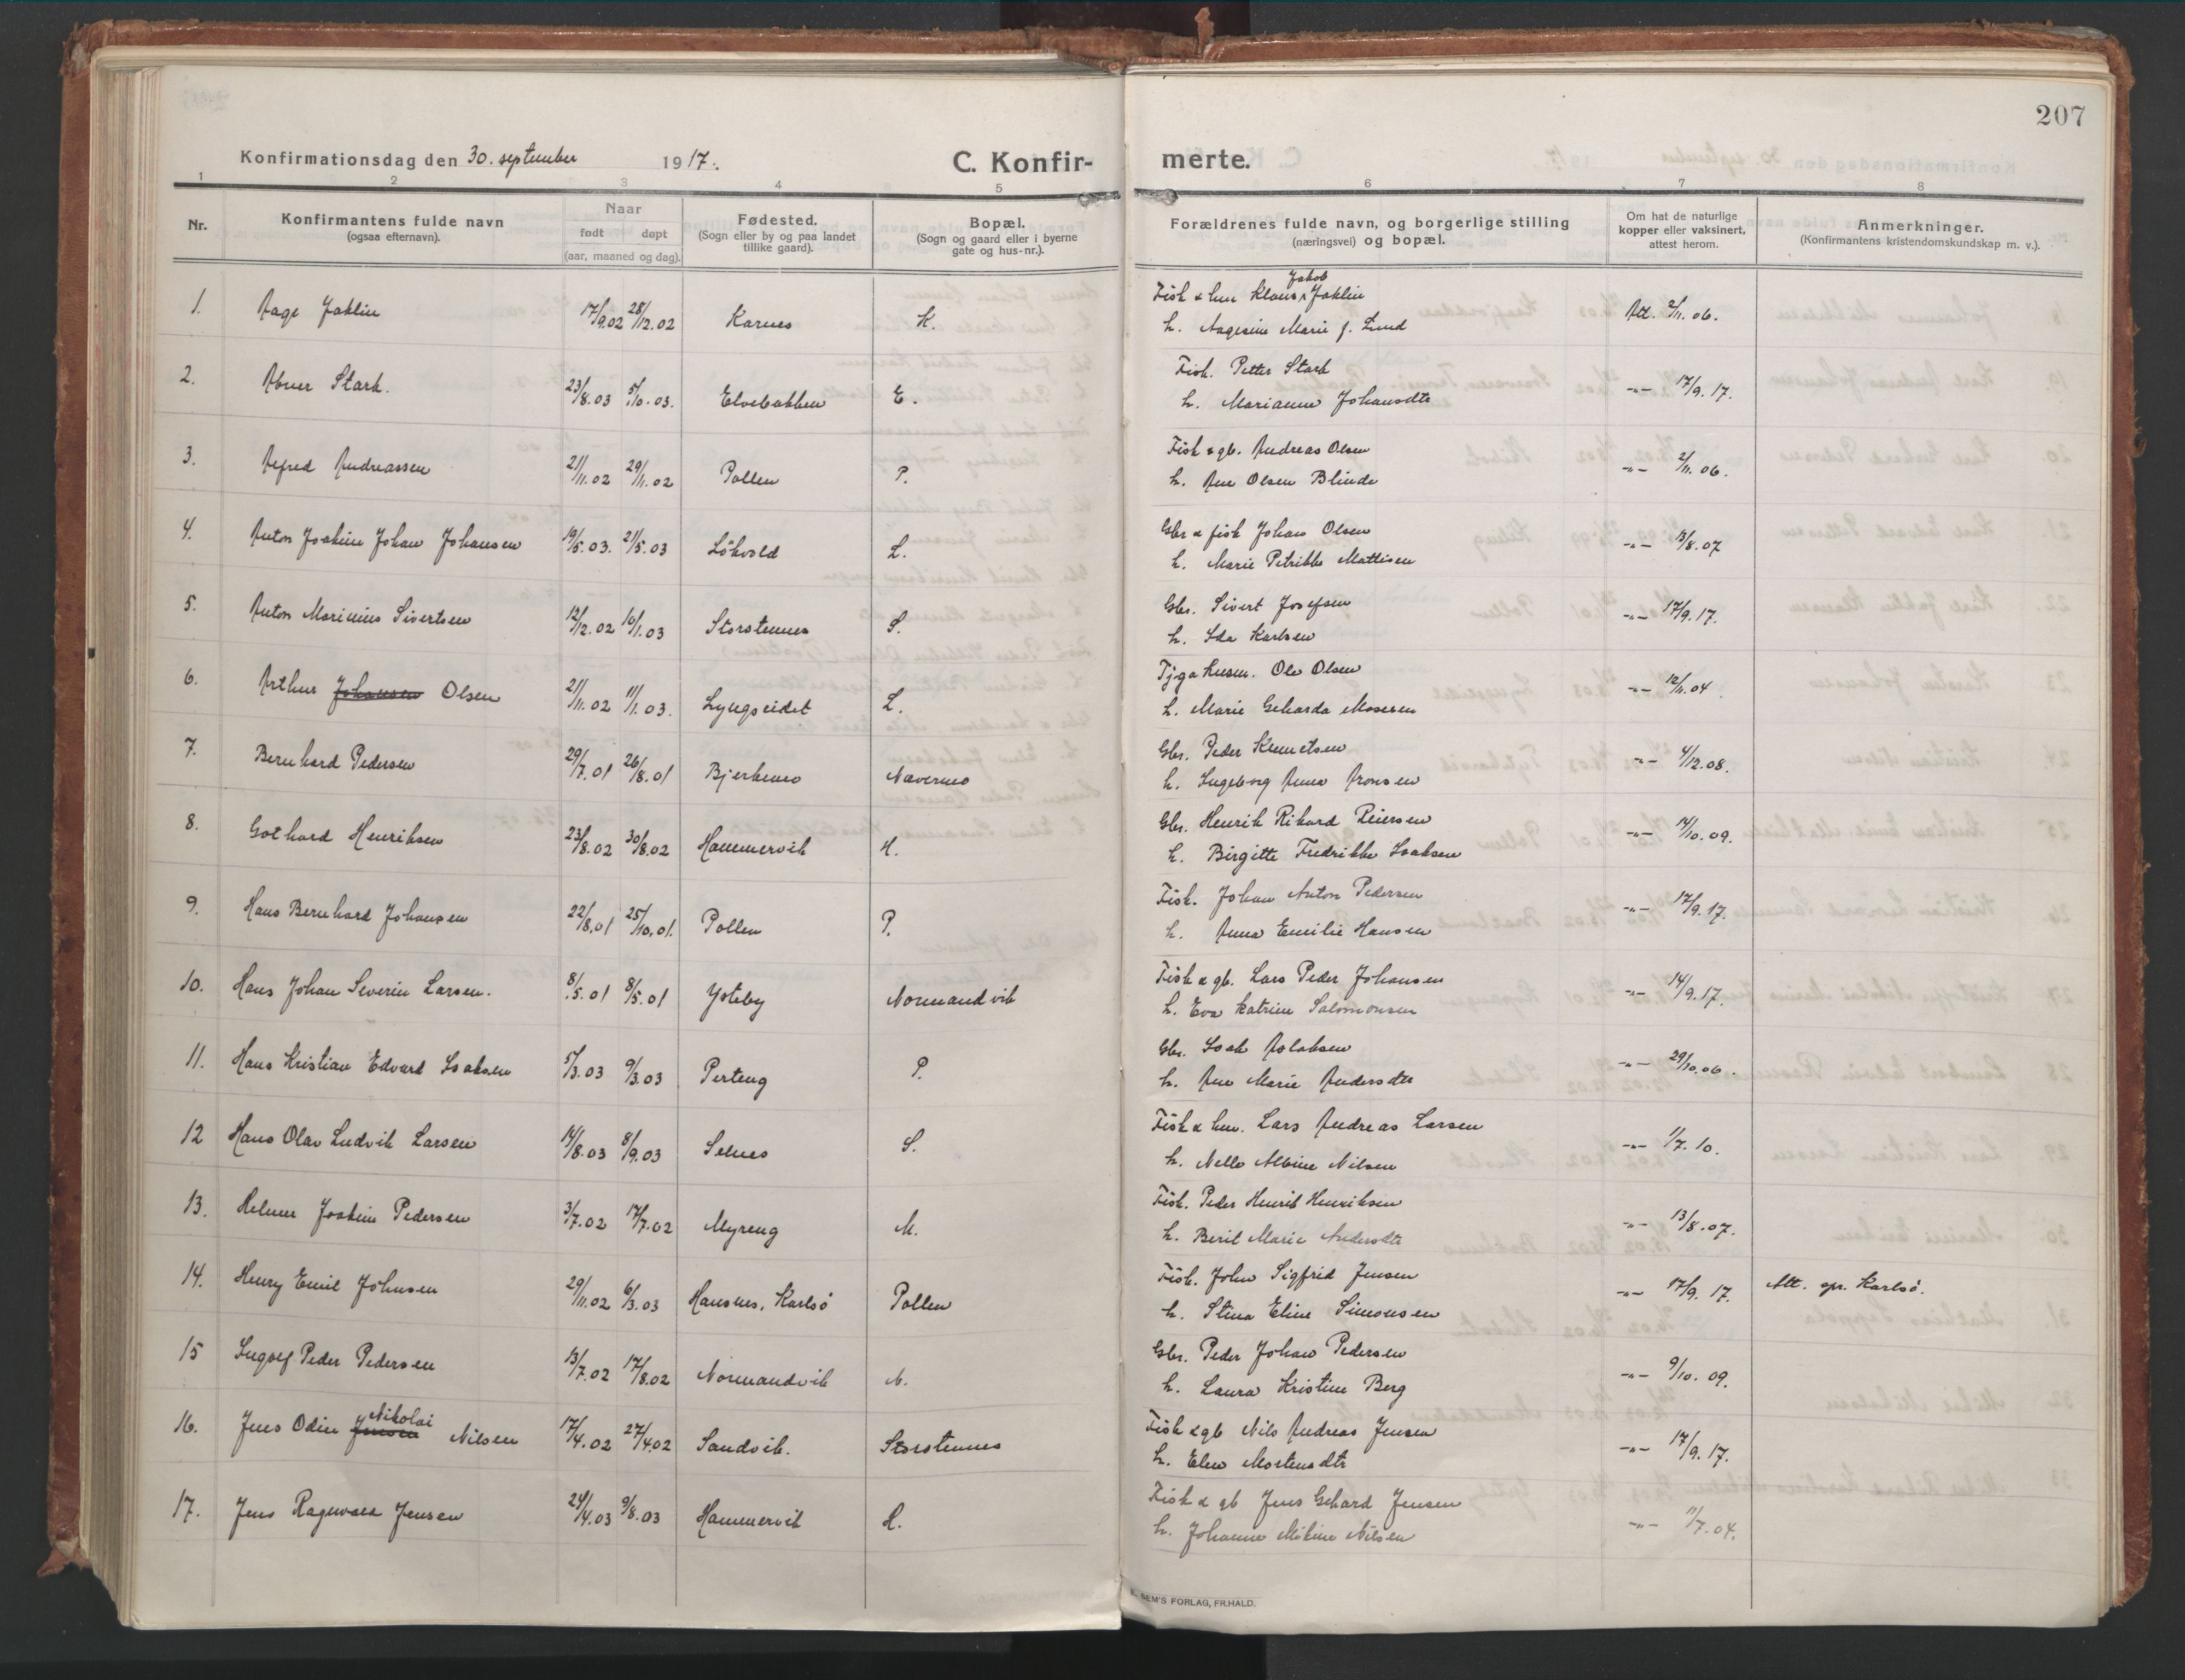 207
Konfirmationsdag den 30. september 1917. C. Konfir- merte.
1 2 3 4 5 6 7 8
Nr. Konfirmantens fulde navn (ogsaa efternavn). Naar født døpt (aar, maaned og dag). Fødested. (Sogn eller by og paa landet tillike gaard). Bopæl. (Sogn og gaard eller i byerne gate og hus-nr.). Forældrenes fulde navn, og borgerlige stilling (næringsvei) og bopæl. Om hat de naturlige kopper eller vaksinert, attest herom. Anmerkninger. (Konfirmantens kristendomskundskap m. v.).
1. Aage Jaklin 17/9.02 28/12.02 Karnes K. Fisk & hm Klaus Jakob Jaklin Att. 2/11.06.
h. Aagesine Marie f. Lund
2. Abner Stark. 23/8.03 5/10.03. Elvebakken E. Fisk. Petter Stark -"- 17/9.17.
h. Marianne Johansdtr
3. Alfred Andreassen 21/11.02 29/11.02 Pollen P. Fisk & gb. Andreas Olsen -"- 2/11.06.
h. Ane Olsen Blinde
4. Anton Joakim Johan Johansen 19/5.03. 21/5.03 Løkvold L. Gbr & fisk Johan Olsen -"- 13/8.07
h. Marie Petrikke Mattisen
5. Anton Marinius Sivertsen 12/12.02 16/1.03 Storstennes S. Gbr. Sivert Josefsen -"- 17/9.17.
h. Ida Karlsen
6. Arthur Johansen Olsen 21/11.02 11/1.03. Lyngseidet L. Ole Olsen -"- 12/11.04.
h. Marie Geharda Mosesen
7. Bernhard Pedersen 29/7.01 26/8.01 Bjerknes Navernes Gbr. Peder Knmetsen -"- 4/12.08.
h. Ingeborg Anna Aronsen
8. Gothard Henriksen 23/8.02 30/8.02 Hammervik H. Gbr. Henrik Rikard Peiersen -"- 14/10.09.
h. Birgitte Fredrikke Isaksen
9. Hans Bernhard Johansen 22/8.01 25/10.01. Pollen P. Fisk. Johan Anton Pedersen -"- 17/9.17.
h. Anna Emilie Hansen
10. Hans Johan Severin Larsen. 8/5.01 8/5.01 Ysteby Normandvik Fisk & gb. Lars Peder Johansen -"- 14/9.17.
h. Eva Katrine Salomonsen
11. Hans Kristian Edvard Isaksen 5/3.03 9/3.03 Perteng P. Gbr. Isak Aslaksen -"- 29/10.06.
h. Ane Marie Andersdtr
12 Hans Olav Ludvik Larsen 14/8.03 8/9.03 Selnes S. Fisk & hm. Lars Andreas Larsen -"- 1/7.10.
h. Nelle Albine Nilsen
13. Helmer Joakim Pedersen 3/7.02 17/7.02 Myreng M. Fisk. Peder Henrik Henriksen -"- 13/8.07.
h. Berit Marie Andersdtr
14. Henry Emil Johnsen 29/11.02 6/3.03 Hansnes, Karlsö Pollen Fisk. John Sigfrid Jensen -"- 17/9.17. Att. spr. Karlsö.
h. Stina Eline Simonsen
15 Ingolf Peder Pedersen 13/7.02 17/8.02 Normandvik N. Gbr. Peder Johan Pedersen -"- 9/10.09.
h. Laura Kristine Berg
16. Jens Odin Jensen Nikolai Nilsen 17/4.02 27/4.02 Sandvik. Storstennes Fisk & gb Nils Andreas Jensen -"- 17/9.17.
h. Elen Mortensdtr
17. Jens Ragnvald Jensen 24/4.03 9/8.03 Hammervik H. Fisk & gb Jens Gehard Jensen -"- 11/7.04.
h. Johanne Mikine Nilsen
SEM'S FORLAG, FR.HALD.